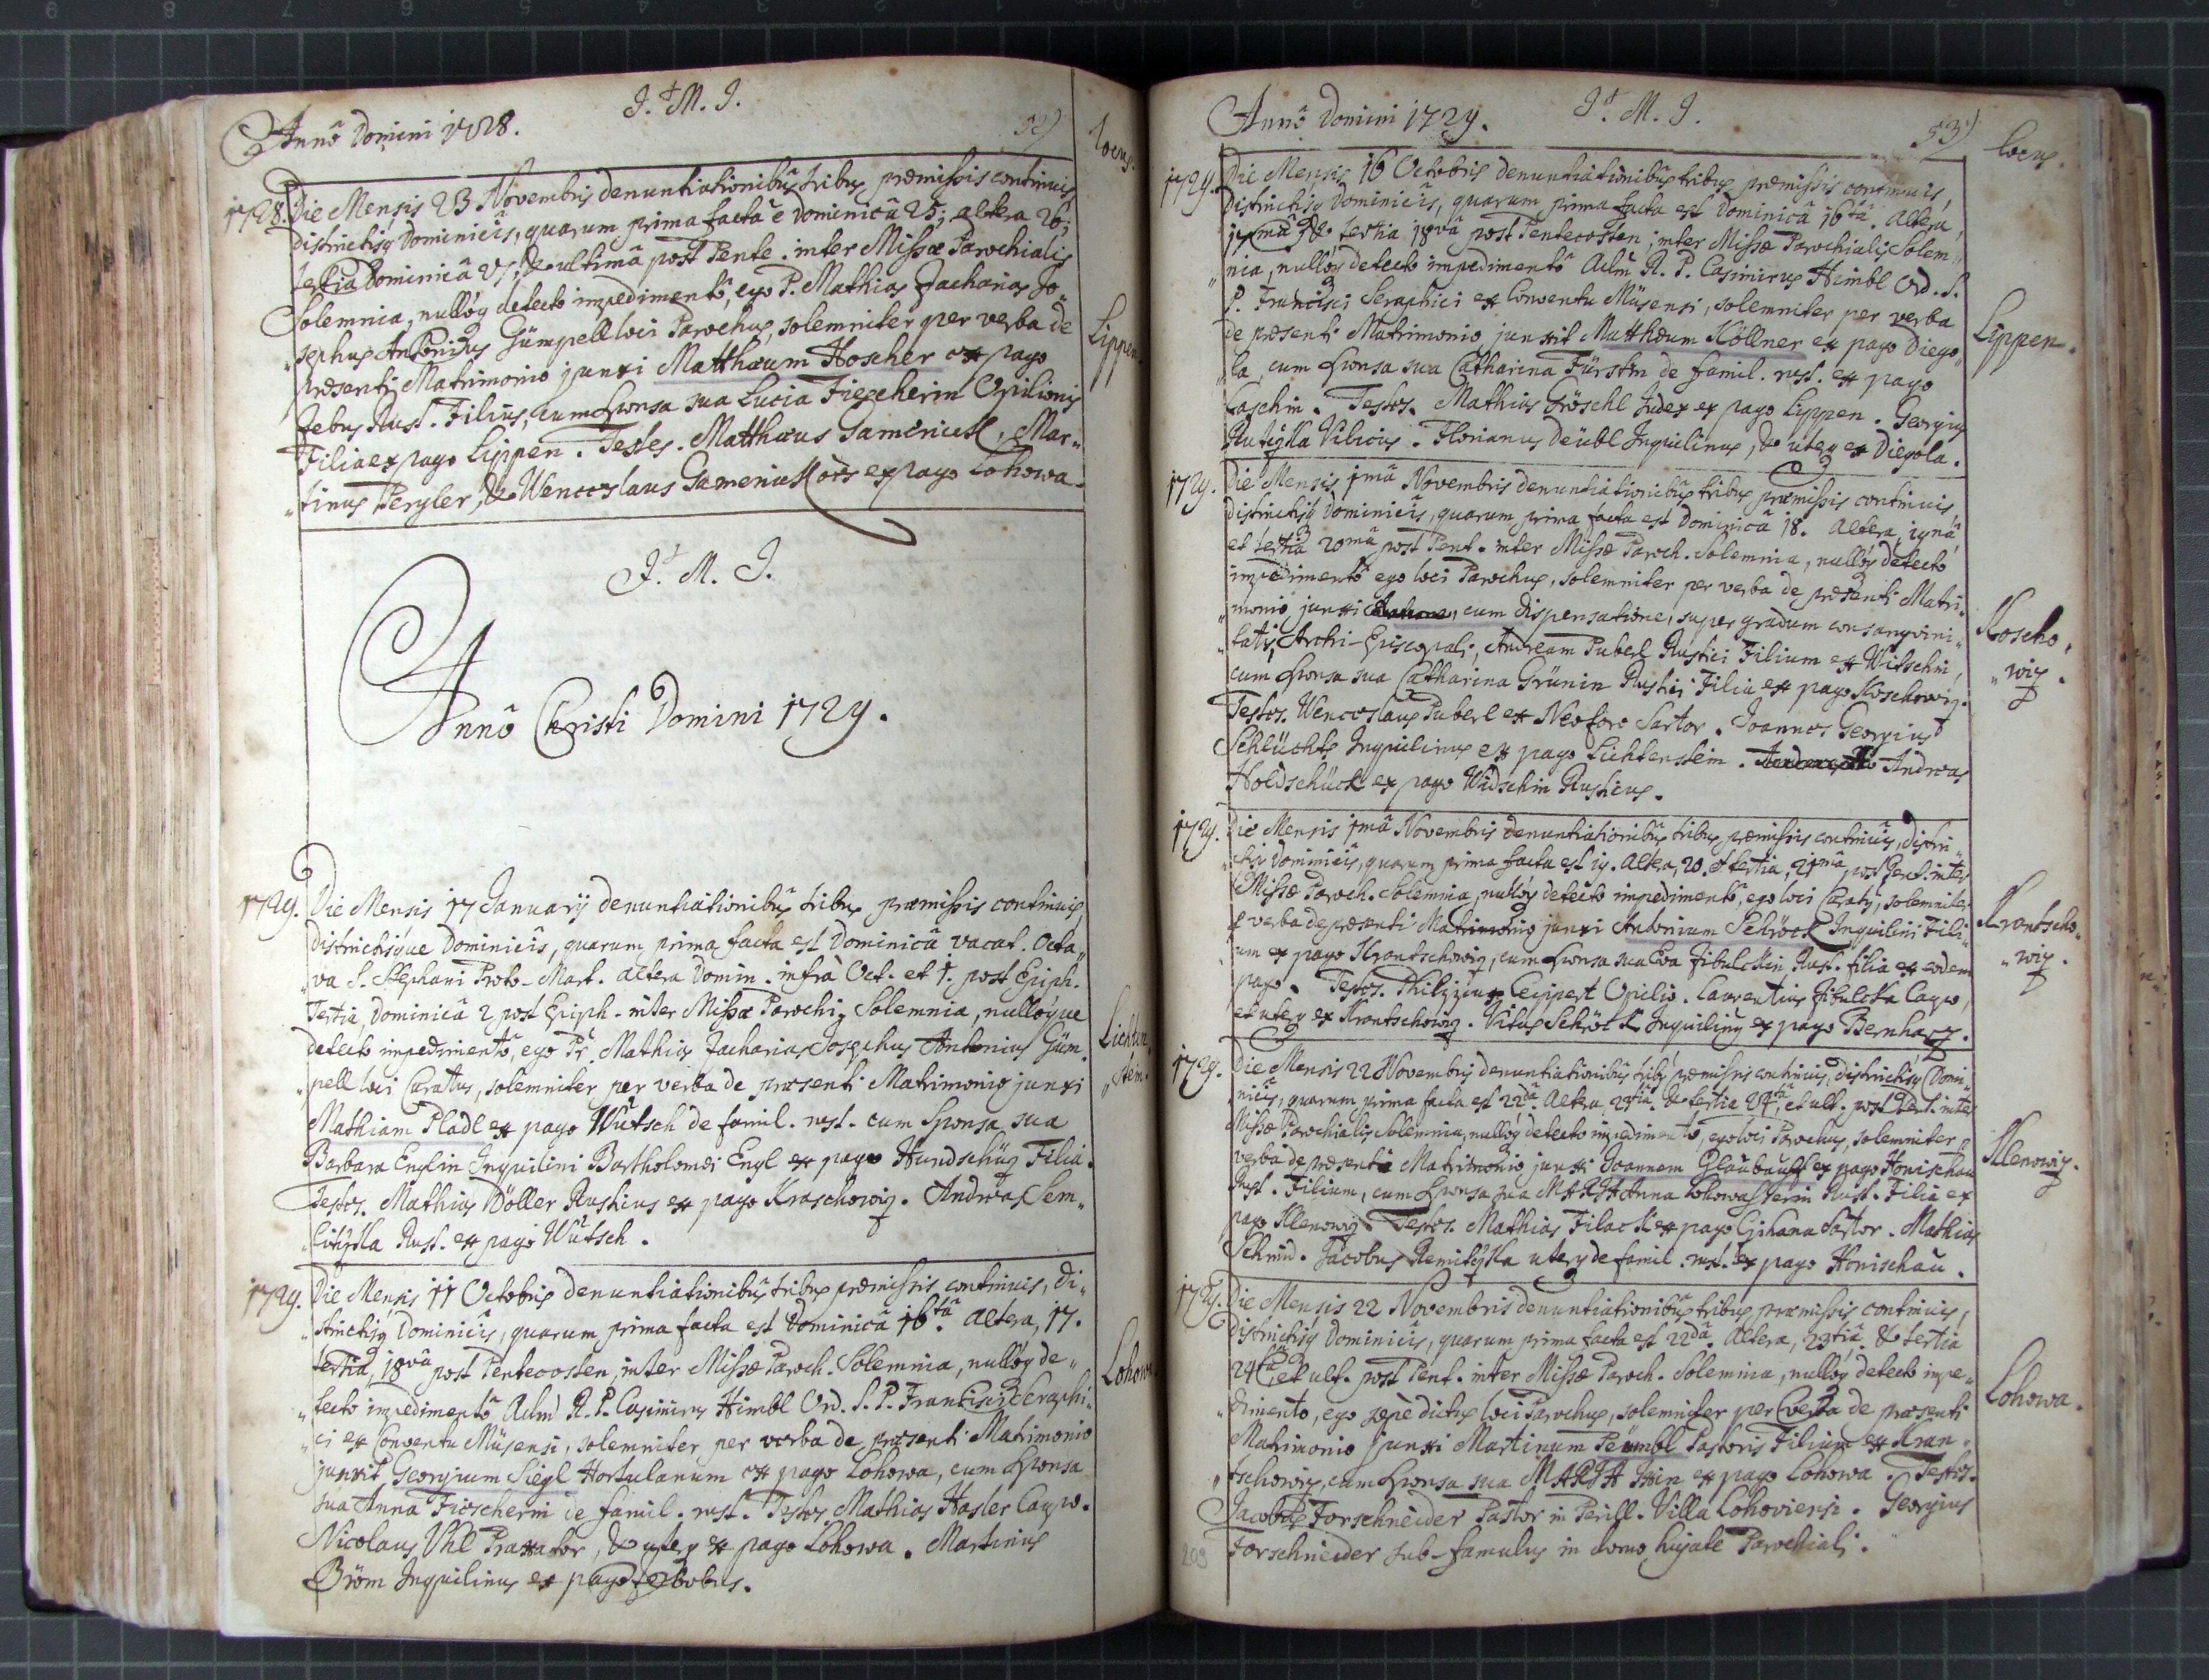 J. M. J.
Anno Domini 1728.
52)
Locus.
1728. Die Mensis 23 Novembris denuntiationibus tribus præmissis continuis
distinctisq Dominicis, quarum prima facta e Dominica 25; altera 26;
tertia Dominica & ultima post Pente. inter Missæ Parochialis
Solemnia, nulloq detecto impedimento, ego P. Mathias Zacharias Jo„
„sephus Antonius Gümpell loci Parochus, solemniter per verba de
præsenti Matrimonio junxi Matthæum Hoscher ex pago
Jebus Rust. Filius, cum Sponsa sua Lucia Fiescherin Opilionis
Filia ex pago Lippen. Testes. Matthæus Gameniick, Mar„
„tinus Pergler, & Wenceslaus Gameniick oēs ex pago Lohowa.
Lippen.
J. M. J.
Anno Christi Domini 1729.
1729. Die Mensis 17 January denuntiationibus tribus præmissis continuis,
Districtisque Dominicis, quarum prima facta est Dominica vacat. Octa„
„va S. Stephani Proto-Mart. altera Domin. infra Oct. et 1. post Epiph.
Tertia, Dominica 2 post Epiph. inter Missæ Parochi. Solemnia, nulloque
detecto impedimento, ego Pr. Mathias Zacharias Josephus Antonius Güm„
„pell loci Curatus, solemniter per verba de præsenti Matrimonio junxi
Mathiam Pladl ex pago Wutsch de famil. rust. cum Sponsa sua
Barbara Englin Inquilini Bartholomei Engl ex pago Hundschüz Filia.
Testes. Mathias Döller Rusticus ex pago Kraschowiz. Andreas Sem„
„litizka Rust. ex pago Wutsch.
Lichten„
„stein.
1729. Die Mensis 11 Octobris denuntiationibus tribus præmissis continuis, di„
„stinctisq Dominicis, quarum prima facta est Dominica 16ta. altera, 17.
tertia, 18va post Pentecosten, inter Missæ Paroch. Solemnia, nulloq de„
„tecto impedimento Adm R. P. Casimirus Himbl Ord. S. P. Francisci Seraphi„
„ci ex Conventu Müsensi, solemniter per verba de præsenti Matrimonio
junxit Georgium Siegl Hortulanum ex pago Lohowa, cum Sponsa
sua Anna Fiescherin de famil. rust. Testes Mathias Hasler Caupo.
Nicolaus Uhl Braxator, & uterq ex pago Lohowa. Martinus
Bröm Inquilinus ex pago
Lohowa
J. M. J.
Anno Domini 1729.
53)
Locus.
1729. Die Mensis 16 Octobris denuntiationibus tribus præmissis continuis,
Distinctisq Dominicis, quarum prima facta est Dominica 16ta. altera,
17ma & tertia 18va post Pentecosten, inter Missæ Parochialis Solem„
„nia, nulloq detecto impedimento Adm R. P. Casimirus Himbl Ord. S.
P. Francisci Seraphici ex Conventu Müsensi, solemniter per verba
de præsenti Matrimonio junxit Matthæum Köllner ex pago Diego„
„la, cum Sponsa sua Catharina Fürstin de famil. rust. ex pago
Laschin. Testes. Mathias Gröschl Judex ex pago Lippen. Georgius
Kutizka Vilicus. Florianus Deübl Inquilinus, & uterq ex Diegola.
Lippen.
1729. Die Mensis 1ma Novembris denuntiationibus tribus præmissis continuis,
distinctisq Dominicis, quarum prima facta est Dominica 18. altera, 19na
et tertia 20ma post Pent. inter Missæ Paroch. Solemnia, nulloq detecto
impedimento ego loci Parochus, solemniter per verba de præsenti Matri„
„monio junxi cum dispensatione, super gradum consangvini„
„tatis, Archi-Episcopali, Andream Puberl Rustici Filium ex Witschin,
cum Sponsa sua Catharina Grünin Rustici Filia ex pago Koschowiz.
Testes. Wenceslaus Puberl ex Neoforo Sartor. Joannes Georgius
Schlückh Inquilinus ex pago Lichtenstein. Andreas
Holdschück ex pago Widschin Rusticus.
Koscho„
„wiz.
1729. Die Mensis 1ma Novembris denuntiationibus tribus præmissis continuis, distin„
ctis Dominicis, quarum prima facta est 19. altera, 20. & tertia, 21ma post Pent. inter
Missæ Paroch. Solemnia, nulloq detecto impedimento, ego loci Curatq, solemniter
p verba de præsenti Matrimonio junxi Antonium Schröck Inquilini Fili„
„um ex pago Krontschowiz, cum Sponsa sua Eva Zibulckin Rust. filia ex eodem
pago. Testes. Philippus Leippert Opilio. Laurentius Zibulcka Caupo,
et uterq ex Krontschowiz. Vitus Schröck Inquilinq ex pago Bernharz.
Krontscho„
„wiz.
1729. Die Mensis 22 Novembris denuntiationibus tribq præmissis continuis, distinctisq Domi„
„nicis, quarum prima facta est 22da. altera, 23tia. & tertia 24ta, et ult. post Pent. inter
Missæ Parochialis Solemnia, nulloq detecto impedimento, ego loci Parochus, solemniter p
verba de præsenti Matrimonio junxi Joannem Glaubauf ex pago Honischau
Rust. Filium, cum Sponsa sua MARIA Anna Lohowasserin Rust. Filia ex
pago Klenowiz. Testes. Mathias Filack ex pago Gihana Sartor. Mathias
Schmid. Jacobus Remitizka uterq de famil. rust. ex pago Honischau.
Klenowiz.
1729. Die Mensis 22 Novembris denuntiationibus tribus præmissis continuis,
Distinctisq Dominicis, quarum prima facta est 22da. altera, 23tia. & tertia
24ta, et ult. post Pent. inter Missæ Paroch. Solemnia, nulloq detecto impe„
„dimento, ego sæpe dictus loci Parochus, solemniter per verba de præsenti
Matrimonio junxi Martinum Peümbl Pastoris Filium ex Kran„
„tschowiz, cum Sponsa sua MARIA Ittin ex pago Lohowa. Testes.
Jacobus Forschneider Pastor in Perill. Villa Lohoviensi. Georgius
Forschneider sub-famulus in domo hujate Parochiali.
Lohowa.
209